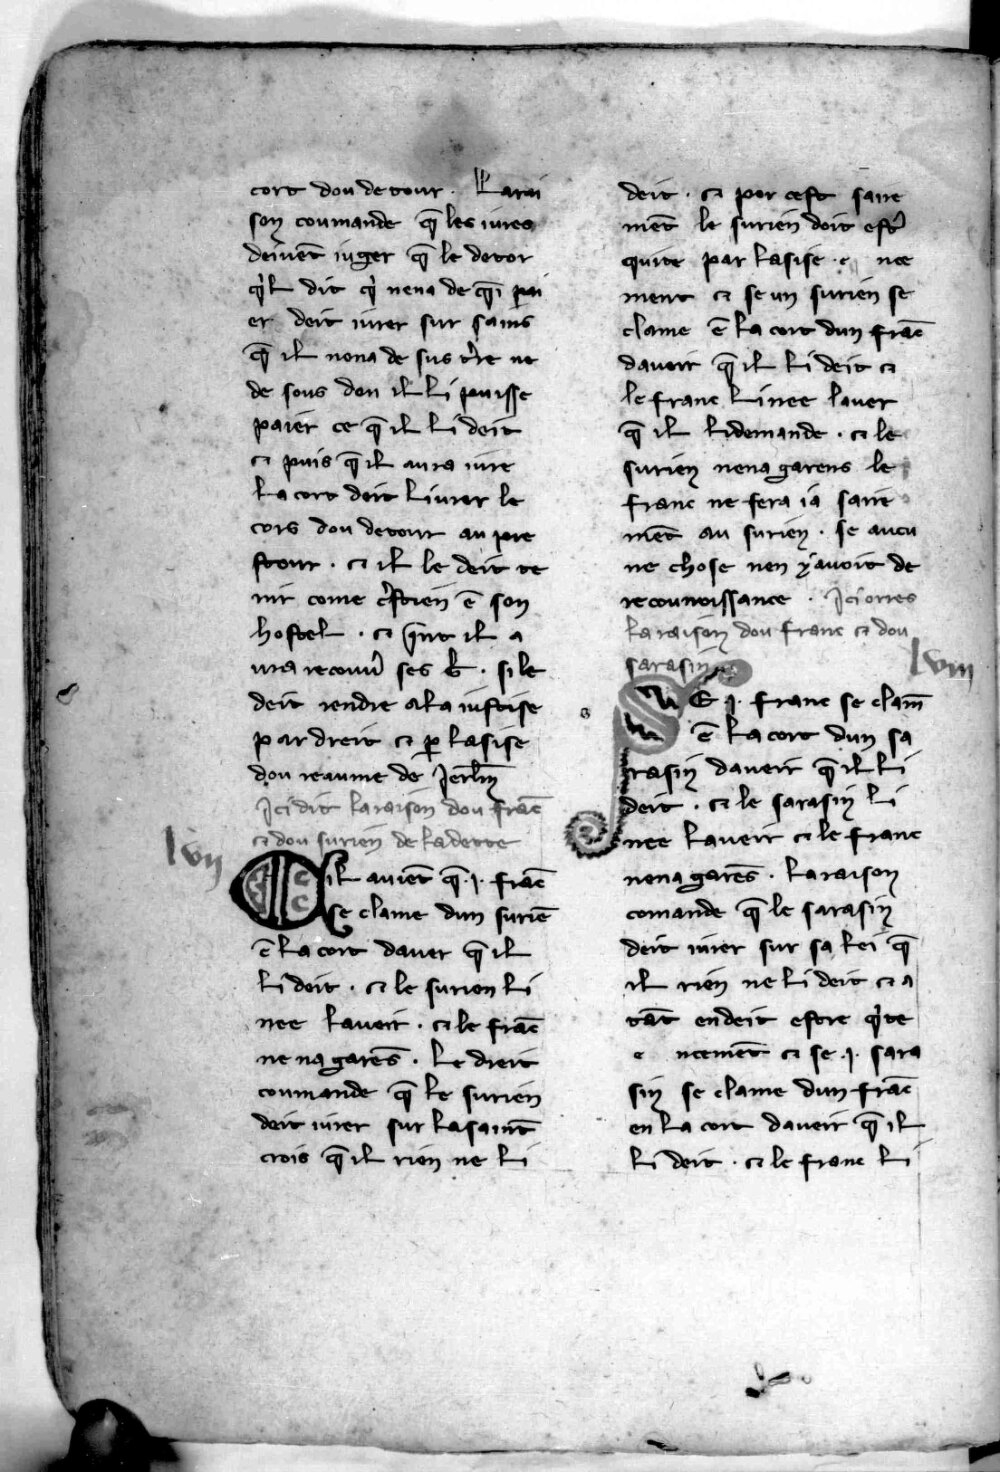 cort dou detour . La rai
son coumande q̄ les iures
deiuēt iuger q̄ le detor
q'l dit q' nena de q̄i pai
er deit iurer sur sains
q̄ il nona de sus t're ne
de sous don il li puisse
paier ce q̄ il li deit
⁊ puis q̄ il aura iure
la cort deit liurer le
cors dou detour au pre
stour . ⁊ il le deit te
nir come c'stien ē son
hostel . ⁊ q̄nt il a
ura recouu' ses b̄ . si le
deit rendre a la iustise
par dreit ⁊ p̄ lasise
dou reaume de Jerl̄m
Ici dit la raison dou frāc
⁊ dou surien de la dette
lvii
Cil auiēt q̄ .i. frāc
se clame dun suriē
ē la cort dauer q̄ il
li doit . ⁊ le surien li
nee laueir . ⁊ le frāc
ne na garēs . Le dreit
coumande q̄ le surien
deit iurer sur la saint
crois q̄ il rien ne li
deit . ⁊ por cest saire
mēt le surien doit est'
quite par lasise . e nce
ment ⁊ se un surien se
clame ē la cort dun frāc
daueir q̄ il li deit ⁊
le franc li nee lauer
q̄ il li demande . ⁊ le
surien nena garens le
franc ne fera ia saire
mēt au surien . se aucu
ne chose nen y auoit de
recounoissance . Ici orres
la raison dou franc ⁊ dou
sarasin
lviii
SE .i. franc se clam̄
ē la cort dun sa
rasin daueir q̄ il li
deit . ⁊ le sarasin li
nee laueir ⁊ le franc
nena garēs . La raison
comande q̄ le sarasin
deit iurer sur sa lei q̄
il rien ne li deit ⁊ a
tāt endeit estre q'te
e ncemēt ⁊ se .i. sara
sin se clame dun frāc
en la cort daueir q̄ il
li deit . ⁊ le franc li